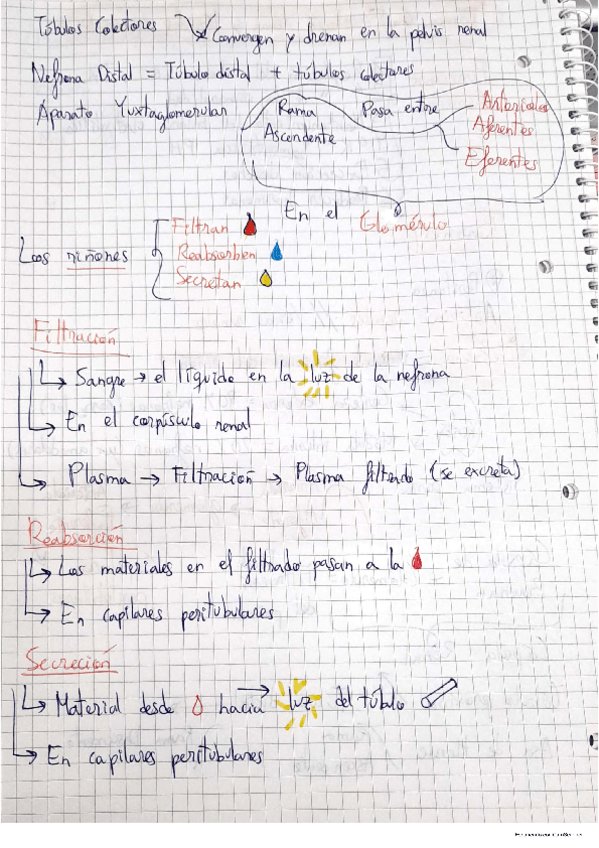 Túbulos Colectores → Convergen y drenan en la pelvis renal
Nefrona Distal = Túbulo distal + túbulos colectores
Aparato Yuxtaglomerular
Rama Ascendente
Pasa entre
Arteriolas
Aferentes
Eferentes
En el Glomérulo
Los riñones
Filtran
Reabsorben
Secretan
Filtración
↳ Sangre → el líquido en la luz de la nefrona
↳ En el corpúsculo renal
↳ Plasma → Filtración → Plasma filtrado (se excreta)
Reabsorción
↳ Los materiales en el filtrado pasan a la
↳ En capilares peritubulares
Secreción
↳ Material desde hacia luz del túbulo
↳ En capilares peritubulares